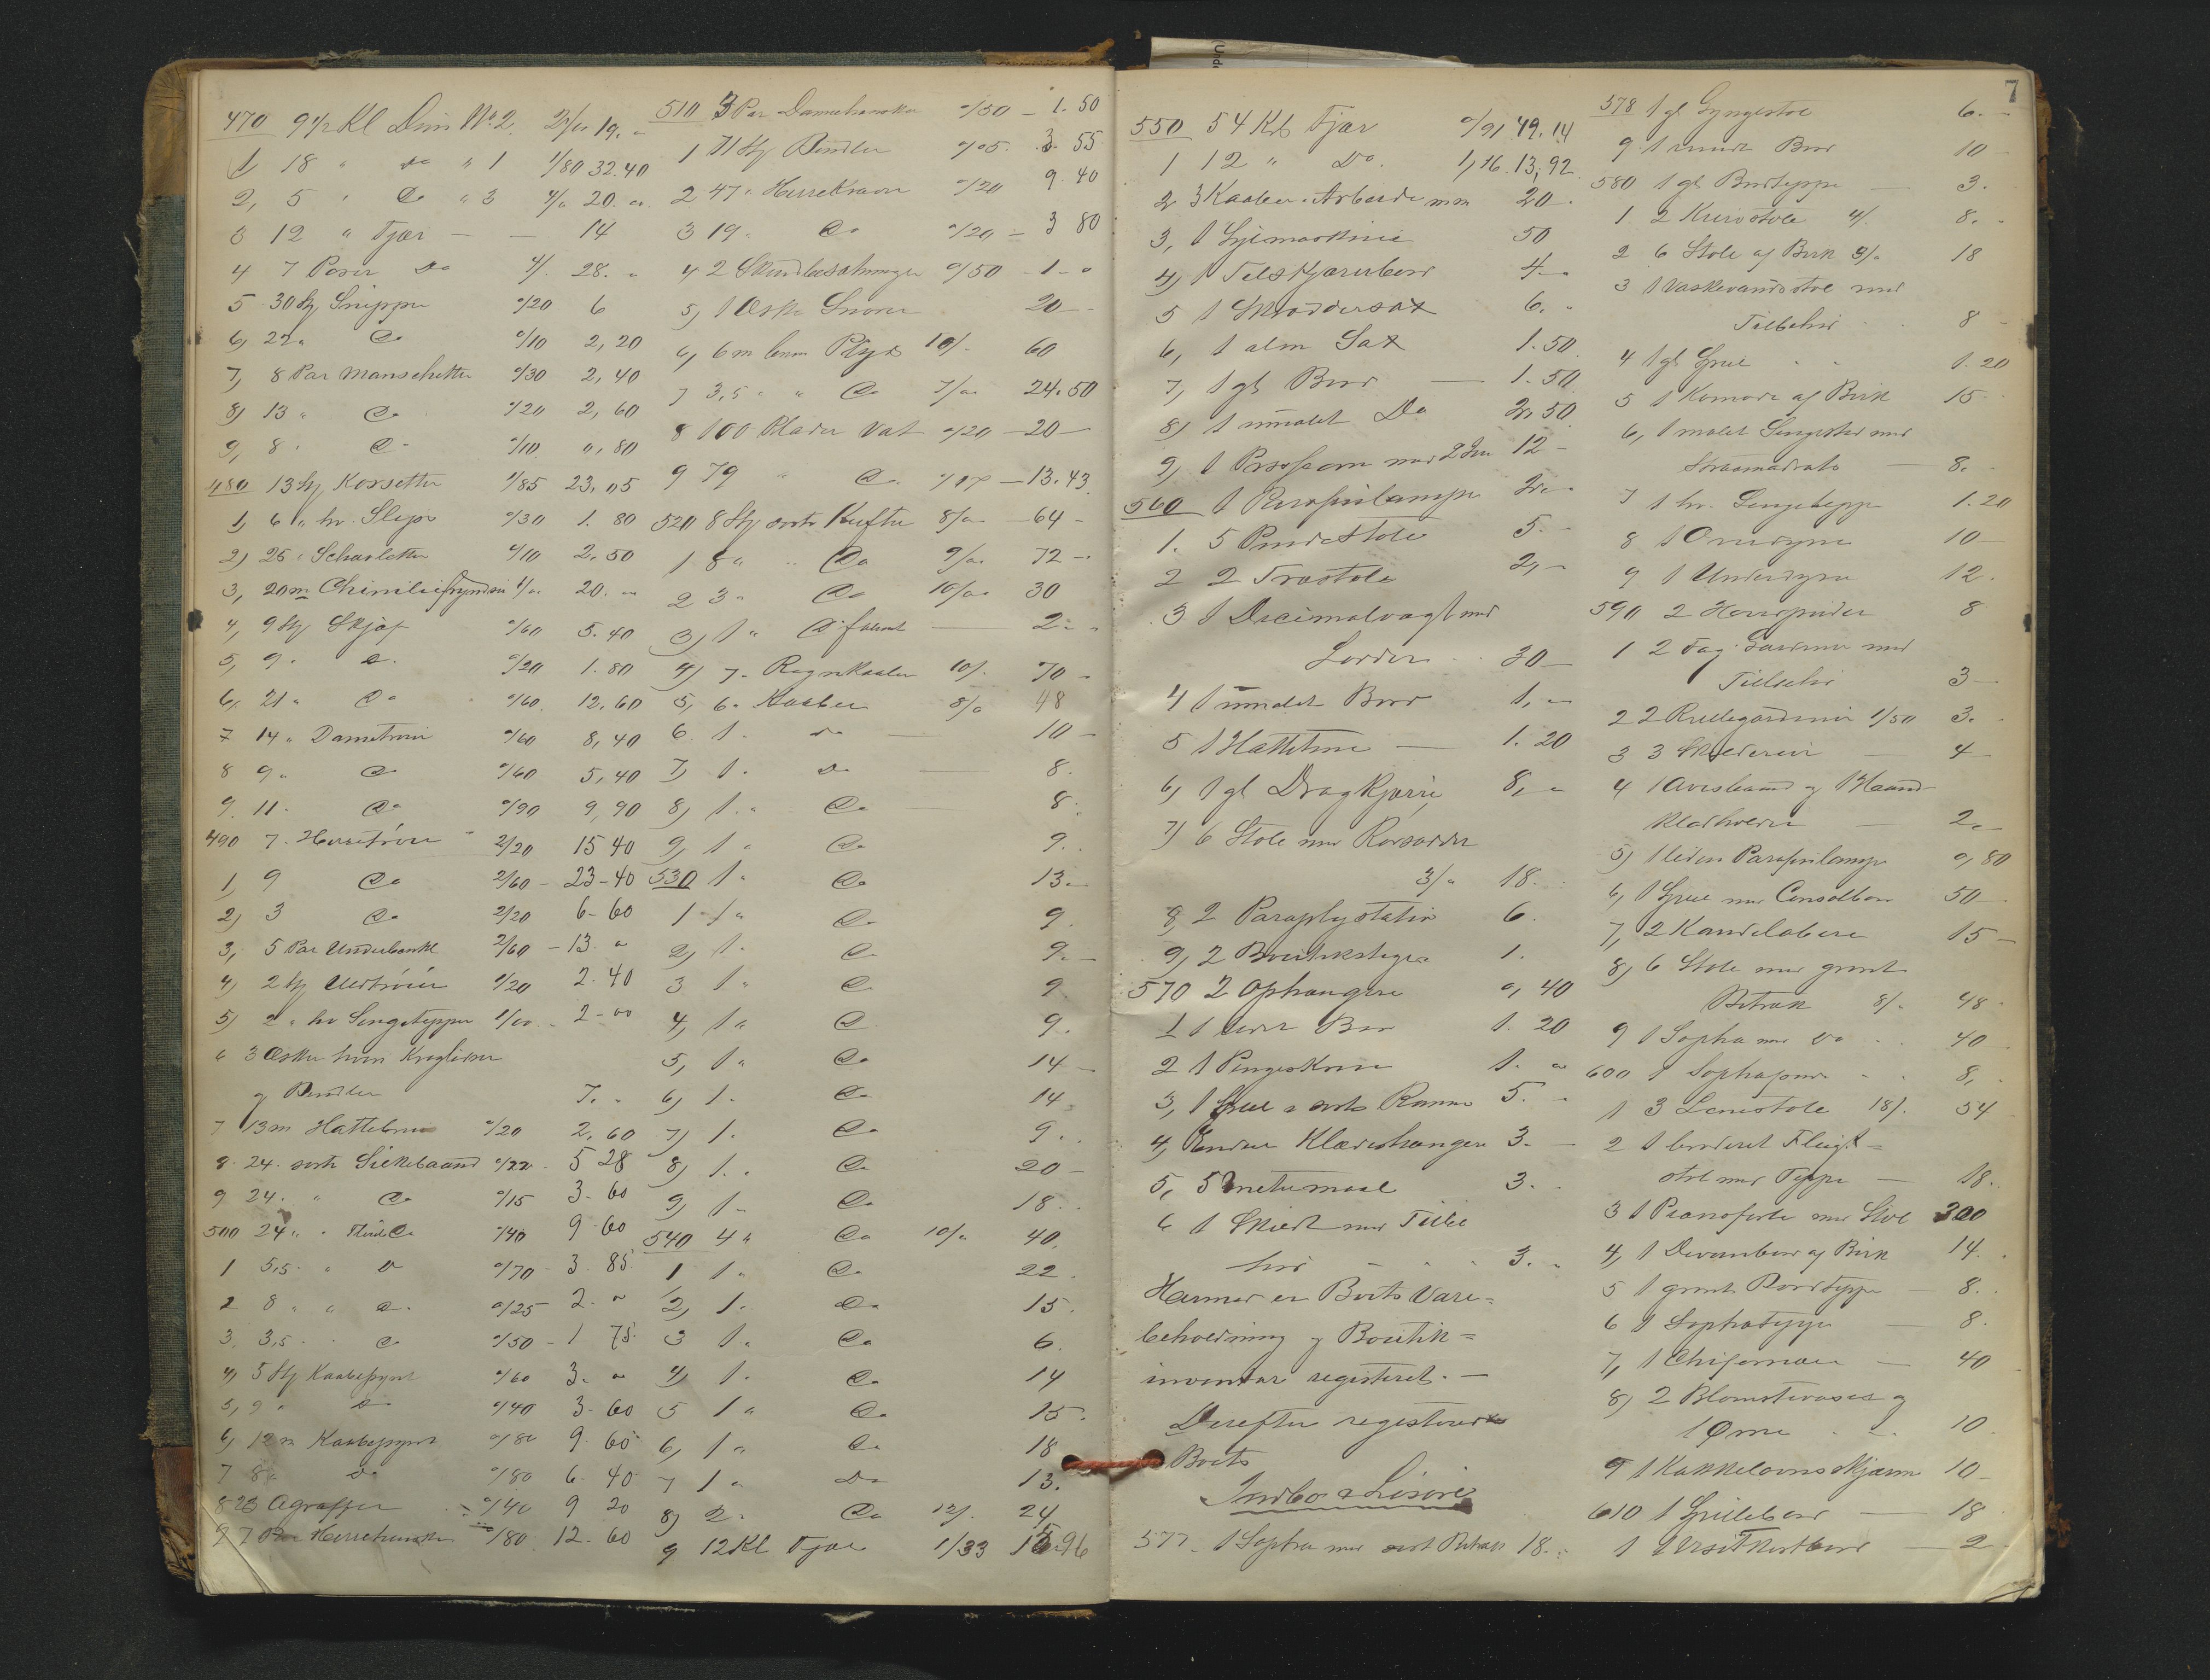 470 9½ Kl Duun No 2. 2/00 19. "
1, 18 " do " 1 1/80 32.40
2, 5 " Do " 3 4/" 20. "
3 12 " Fjær — — 14
4 7 Poser Do 4/. 28. "
5 30 Stj Snipper "/20 6
6, 22 " Do "/10 2,20
7, 8 Par Manschetter "/30 2,40
8) 13 " Do "/20 2,60
9, 8 " Do "/10 ",80
480 13 Stj Korsetter 1/85 23,"5
1, 6 " hv. Slips "/30 1.80
2) 25 " "/10 2.50
3, 20 m 1/" 20. "
4, 9 Stj Skjøf "/60 5.40
5, 9 " Do "/20 1.80
6, 21 " Do "/60 12,60
7 14 " Dametrøier "/60 8,40
8 9 " Do "/60 5,40
9. 11 " Do "/90 9,90
490 7 " Herretrøier 2/20 15 40
1, 9 Do 2/60 – 23–40
2) 3 Do 2/20 6–60
3, 5 Par Underbenkl 2/60 – 13. "
4) 2 Stj Uldtrøier 1/20 2.40
5) 2 " hv Sengetepper 1/00 2–00
6 3 Æsker
og Bændler 7. "
7 13 m "/20 2,60
8. 24 " sorte Silkebaand "/22 5 28
9 24. " Do "/15 3–60
500 24 " " Do "/40 9–60
1 5,5 " D "/70 – 3.85
2 8 " " Do "/25 – 2. "
3. 3,5 " " Do "/50 – 1 75
4, 5 Stj Kaabepynt "/60 3. "
5, 9 " Do "/40 3–60
6, 12 m Kaabepynt "/80 9.60
7 8 " Do "/80 6.40
8 23 Agraffer "/40 9 20
9 7 Par Herrehansker 1/80 12.60
510 3 Par Damehansker "/50 – 1.50
1 71 Stj Bændler "/05 3.55
2 47 " Herrekraver "/20 9.40
3 19 " Do "/20 – 3 80
4 2 Skindbesætninger "/50 – 1 – "
5) 1 Æske Snorer 20 –
6, 6 m Plyds 10/. 60
7 3,5 " " Do 7/" 24.50
8 100 Plader Vat "/20 – 20 –
9 79 " Do "/17 – 13.43
520 8 Stj sorte Kufter 8/" – 64 –
1 8 " " Do 9/" 72 –
2 3 " Do 10/" 30
3) 1 " Do 2 – "
4) 7 " Regnkaaber 10/. 70 –
5, 6 " Kaaber 8/" 48
6. 1 " do — 10 –
7, 1 " Do — 8.
8) 1 " Do 8.
9) 1 " Do 9.
530 1 " Do 13.–
1 1 " Do 9.
2, 1 " Do 9.–
3 1 " Do 9
4, 1 " Do 9.
5, 1 " Do 14 –
6) 1 " Do 14
7) 1 " Do 9..
8) 1 " Do 20 –
9) 1 " Do 18..
540 4 " Do 10/" 40.
1 1 " Do 22.
2, 1 " Do 15.
3 1 " Do 6.
4, 1 " Do 14
5 1 " Do 15.
6, 1 " Do 18
7 1 " Do 13.
8) 2 " Do 12/. 24
9 12 Kl Fjær 1/33 15.96
550 54 Kl Fjær "/91 49.14
1 12 " Do. 1,16. 13,92
2 3 Kaaber i Arbeide m m 20 –
3, 1 Symaskine 50
4, 1 Tilskjærerbord 4 – "
5 1 Skræddersax 6. "
6, 1 alm Sax 1.50
7, 1 gl Bord — 1.50
8) 1 umalet Do 2,50
9) 1 Presseovn med 2 Jern 12 –
560 1 Parafinlampe 2. "
1. 5 Pindestole 5. –
2 2 Træstole 2, –
3 1 Decimalvægt med
Lodder 30 –
4 1 umalet Bord 1, "
5 1 — 1.20
6, 1 gl Dragkjærre, 8, "
7) 6 Stole med Rørsæder
3/" 18.
8, 2 Paraplystativ 6.
9, 2 Boutikstiger 1.
570 2 Ophængere ", 40
1 1 lidet Bor 1.20
2 1 Pengeskrin 1. "
3, 1 Speil i sort Ramme 5. –
4, Endel Klædeshængere 3. –
5, 5 metermaal 3. –
6 1 Skilt med Tilbe
hør – – 3. "
Hermed er Boets Vare=
beholdning og Boutik=
inventar registeret. —
Derefter registeredes
Boets
Indbo & Løsøre
577. 1 Sopha med sort Betræk 18. –
7
578 1 gl Gyngestol 6. –
9 1 rundt Bord 10 –
580 1 gl Bordteppe — 3.
1. 2 Kurvstole 4/. 8. "
2 6 Stole af Birk 3/" 18
3 1 Vaskevandsstol med
Tilbehør 8 –
4 1 gl Speil " " 1.20
5 1 Komode af Birk 15 –
6, 1 malet Sengested med
Straamadrats — 8. –
7 1 hv. Sengeteppe 1.20
8 1 Overdyne 10 –
9 1 Underdyne 12.
590 2 Hovedpuder 8
1 2 Fag Gardiner med
Tilbehør 3 –
2 2 Rullegardiner 1/50 3. –
3 3 Skilderier — 4
4 1 Avisbaand og 1 Haand
klædholder — 2. –
5) 1 liden Parafinlampe ", 80
6, 1 Speil med Consolbord 50 –
7, 2 Kandelabere 15 –
8) 6 Stole med grønt
Betræk 8/. 48 –
9 1 Sopha med Do 40
600 1 Sophapude " " 8,
1 3 Lænestole 18/. 54
2 1 broderet Fløigt=
stol med Teppe — 18.
3 1 Pianoforte med Stol 300
4, 1 Divanbord af Birk 14.
5 1 grønt Bordteppe — 8.
6 1 Sophateppe — 8.
7, 1 Chifonniere — 40
8) 2 Blomstervaser og
1 Ørne 10
9 1 Kakkelovnsskjærm 10 –
610 1 Spillebord — 18
1 1 Visitkortbord — 2